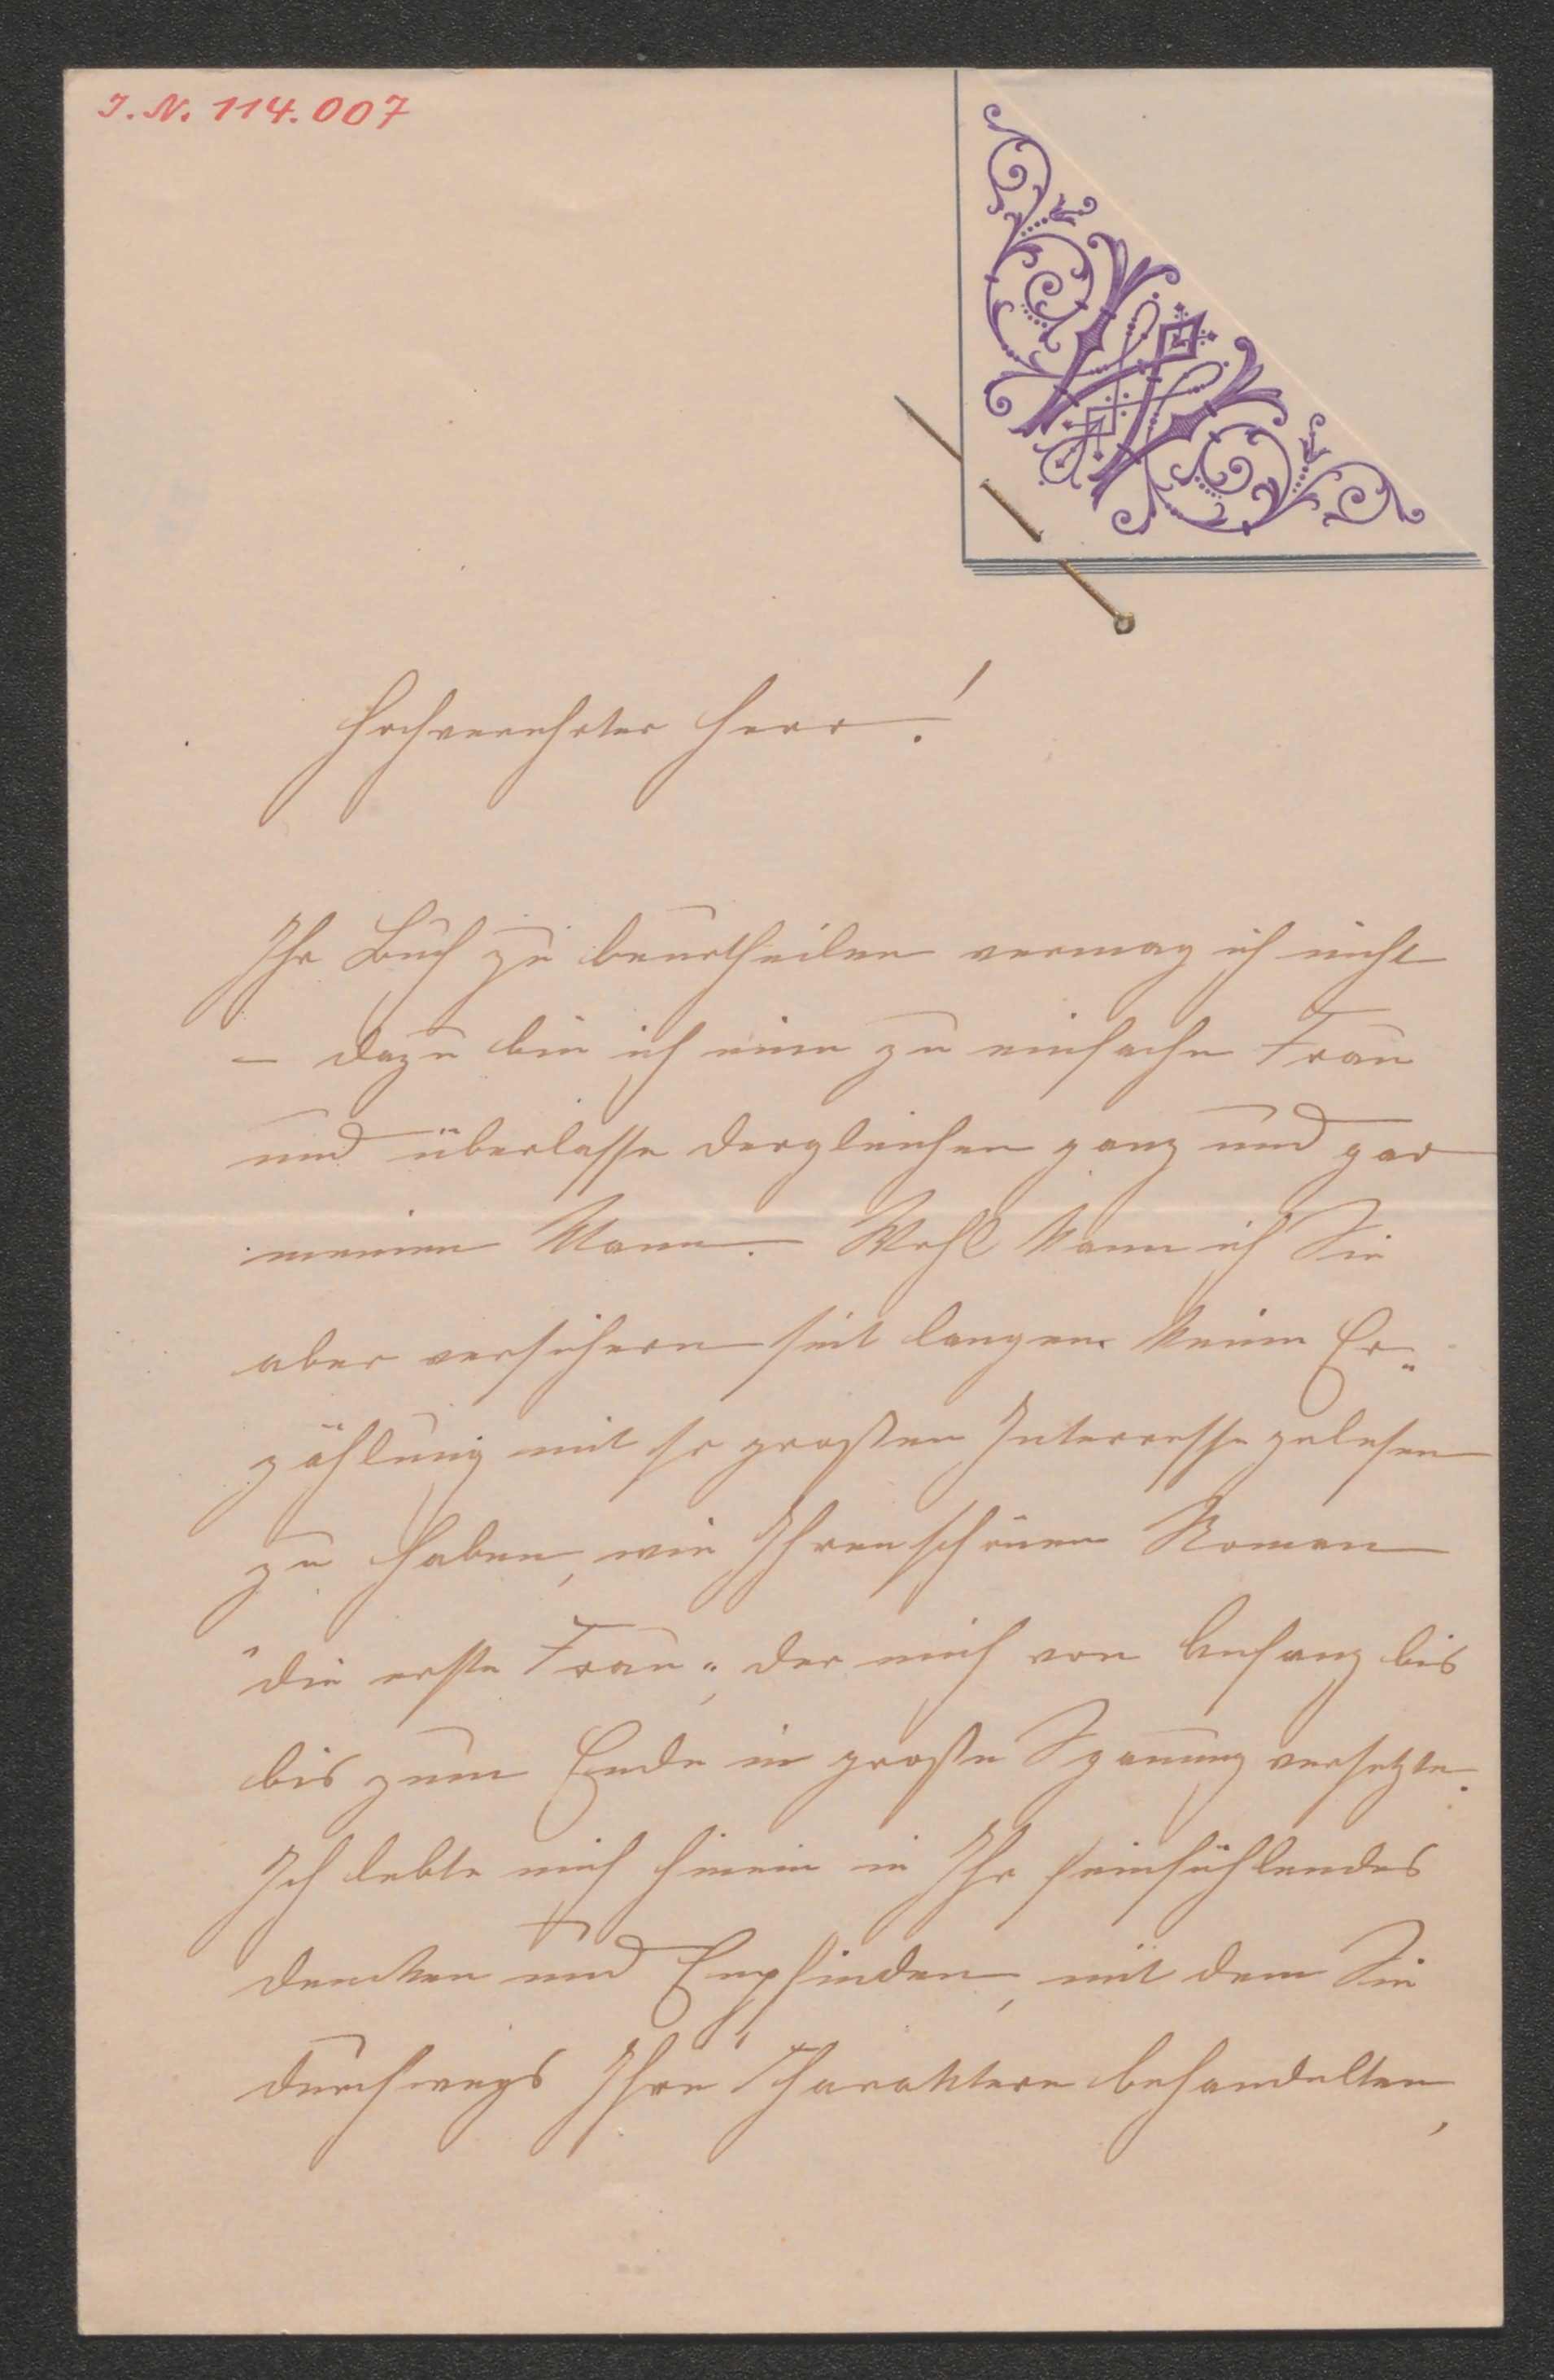 I. N. 114.007
Hochverehrter Herr!
Ihr Buch zu beurtheilen vermag ich nicht
– dazu bin ich eine zu einfache Frau
und überlasse dergleichen ganz und gar
meinen Mann. Wohl kann ich Sie
aber versichern seit langem keine Er„
zählung mit so großen Interresse gelesen
zu haben, wie Ihren schönen Roman
"die erste Frau", der mich von Anfang bis
bis zum Ende in große Spanung versetzte.
Ich lebte mich hinein in Ihr feinfühlendes
dencken und Empfinden, mit dem Sie
durchwegs Ihre Charaktere behandelten,